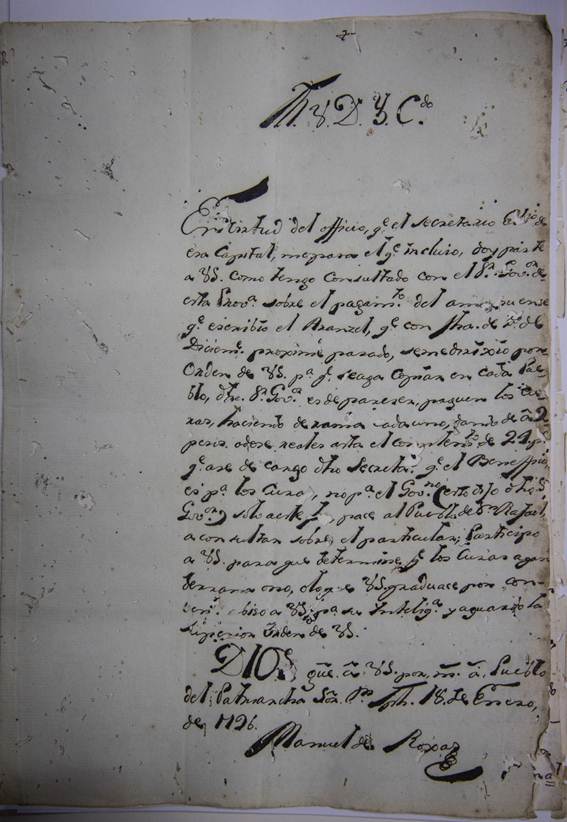 M. Y. D. Y. C.do
En virtud del officio, q.e el Secretario
esa Capital, me pasa el q.e incluio, doy parte
a VS. como tengo Consultado con el S.r Gov.or de
esta Prov.a sobre el pagam.to del
q.e escribio el Aranzel, q.e con fha. de de
Diciem.e proximo pasado, se me por
Orden de VS. p.a q.e se aga Copiar en cada Pue
blo, dho. S.r Gov.or es de pareser, paguen los Cu
ras, haciendo cada uno, dando de a 2
pesos reales asta el de 24 p.s
q.e ase de cargo dho Secreta.o q.e el Beneffisio
es p.a los Curas, no p.a el Gov.no esto dijo dho S.r
Gov.or pase al Pueblo de S.n Rafael,
a consultar sobre el particular; Participo
a VS. para que determine, si los Curas agan
derrama o no, o lo que VS. graduace por con
veni.e abiso a VS. p.a su Intelig.a y aguardo la
Superior Orden de VS.
DIOS gu.e a VS. por m.s a.s Pueblo
del Patriarcha S.or S.n Jph. 18. de Enero,
de 1796.
Manuel de Roxas